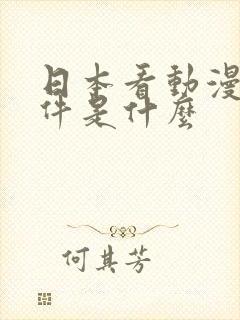 日本看動漫
件是什麼
何其芳